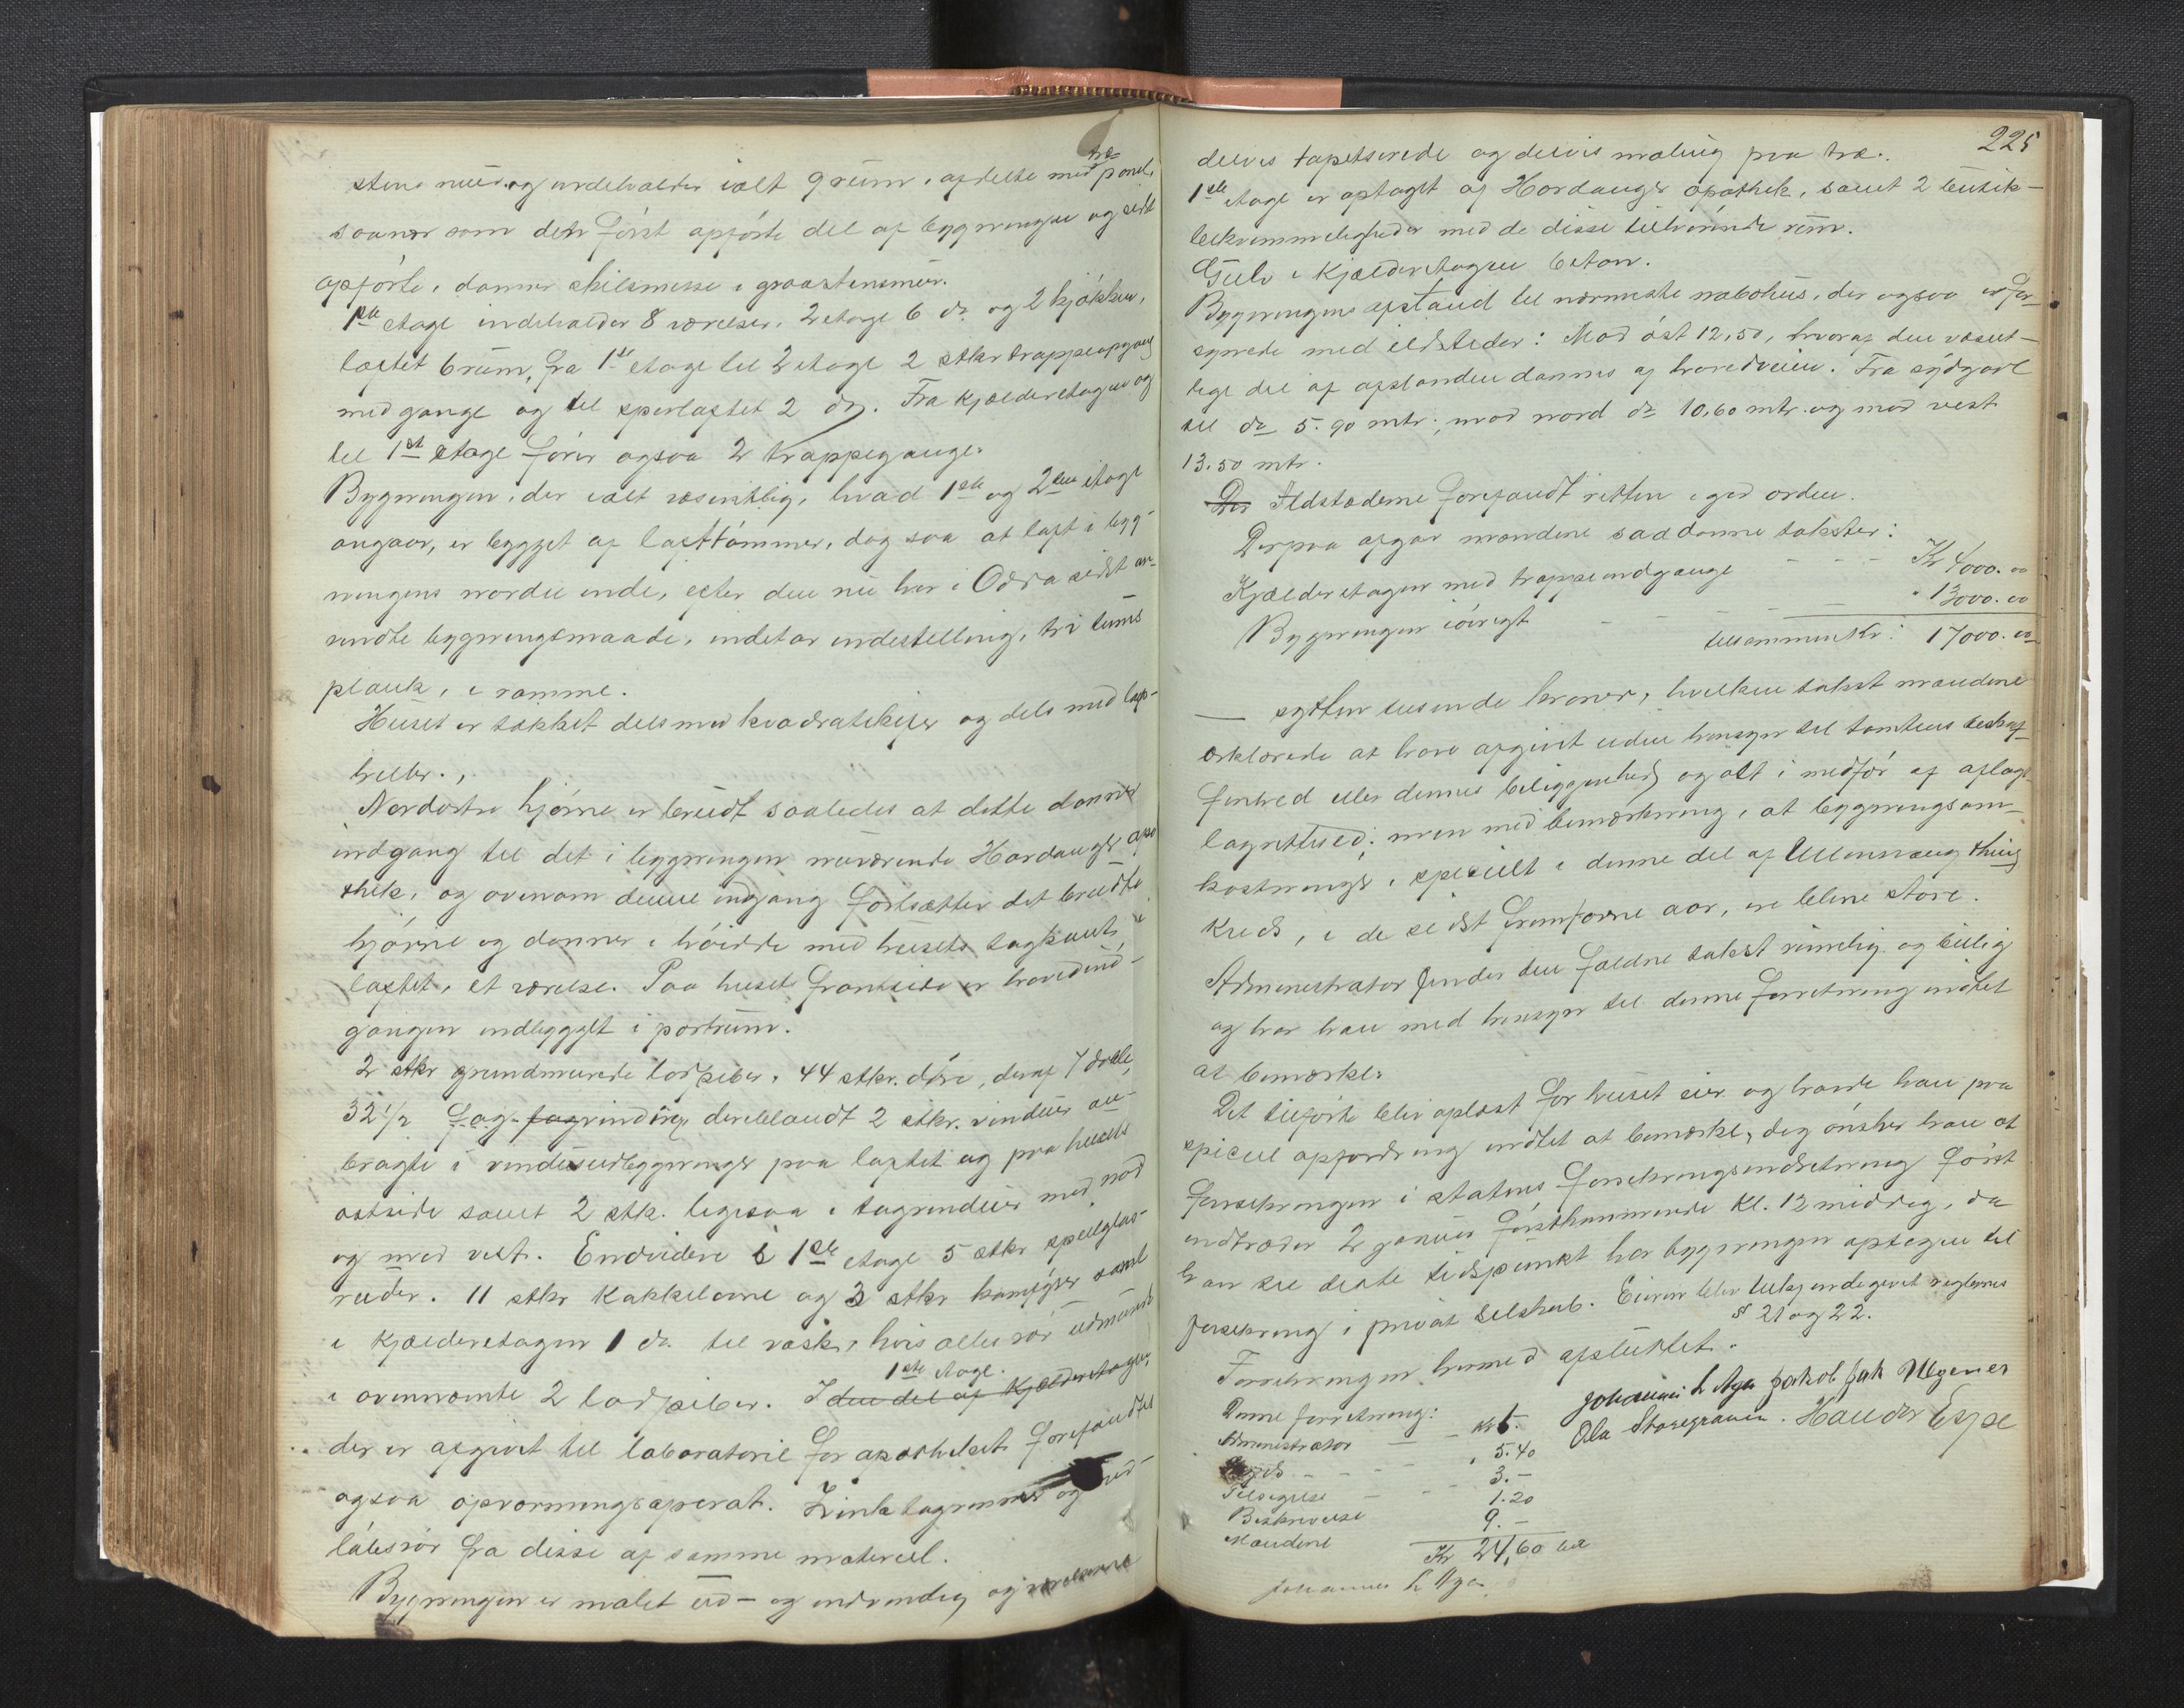 stens muur og indeholder ialt 9 rum, afdelte med træ-panel,
saanær som den først opførte del af bygningen og sidst
opførte, danner skilsmisse i graastensmur.
1ste etage indeholder 8 værelser, 2 etage 6 do. og 2 kjøkken,
loftet 6 rum, fra 1ste etage til 2 etage 2 stkr trappeopgang
med gange og til øverloftet 2 do. Fra kjælderetagen og
til 1ste etage fører ogsaa 2 trappegange.
Bygningen, der ialt væsentlig, hvad 1ste og 2den etage
angaar, er bygget af lafttømmer, dog saa at loft i byg-
ningens nordre ende, efter den nu her i Odda sidst an-
vendte bygningsmaade, indetar indestelling, tri tums
plank, i ramme.
Huset er tækket dels med kvadratskifer og dels med lap-
heller.,
Nordøstre hjørne er brudt saaledes at dette danner
indgang til det i bygningen nuværende Hardanger apo
thek, og ovenom denne indgang fortsætter det brudte
hjørne og danner i høide med husets tagkant i
loftet, et værelse. Paa husets frontside er hovedind-
gangen indbygget i portrum.
2 stkr grundmurede lodpiber. 44 stkr. døre, deraf 7 doble,
32 1/2 fag fagvinduer, deriblandt 2 stkr. vinduer an-
bragte i vindusudbygninger paa loftet og paa husets
østside samt 2 stk. ligesaa i tagvinduer mod nord
og mod vest. Endvidere i 1ste etage 5 stkr speilglas-
ruder. 11 stkr kakkelovne og 3 stkr komfyrer samt
i kjælderetagen 1 do. til vask, hvis alles rør udmunde
i ovennævnte 2 lodpiber. I den del af kjælderetagen, 1ste etage.
der er afgivet til laboratorie for apotheket forefandtes
ogsaa opvarmningsaparat. Zinktagrenner og ned-
løbsrør fra disse af samme materiel.
Bygningen er malet ud- og indvendig og værelserne
225
delvis tapetserede og delvis maling paa træ.
1ste etage er optaget af Hardanger apothek, samt 2 butik-
bekvemmeligheder med de disse tilhørende rum.
Gulv i kjælderetagen beton.
Bygningens afstand til nærmeste nabohus, der ogsaa er for-
synede med ildsteder: Mod øst 12,50, hvoraf den væsent-
lige del af afstanden dannes af hovedveien. Fra sydgavl
til do 5.90 mtr., mod nord do 10,60 mtr. og mod vest
13.50 mtr.
Der Ildstæderne forefandt retten i god orden.
Derpaa afgav mændene saadanne takster:
Kjælderetagen med trappeindgange - - - Kr 4000.00
Bygningen iøvrigt - - - " 13000.00
tilsammen Kr: 17000.00
— sytten tusinde kroner, hvilken takst mændene
erklærede at have afgivet uden hensyn til tomtens beskaf-
fenhed eller dennes beliggenhed og alt i medfør af aflagt
lagretteed; men med bemærkning, at bygningsom-
kostninger, specielt i denne del af Ullensvang thing
kreds, i de sidst fremfarne aar, ere blevne store.
Administrator finder den faldne takst rimelig og billig
og har han med hensyn til denne forretning indtet
at bemærke.
Det tilførte blev oplæst for husets eier og havde han paa
speciel opfordring indtet at bemærke, dog ønsker han at
forsikringen i statens forsikringsindretning først
indtræder 2 januar førstkommende kl. 12 middag, da
han til dette tidspunkt har bygningen optagen til
forsikring i privat selskab. Eieren blev tilkjendegivet reglernes
§ 21 og 22.
Forretningen hermed afsluttet.
Johannes L Aga Jakob Jak Mogener
Ola Storegraven. Haldor Espe
Denne forretning:
Administrator — - kr 6.
- - - - , 5.40
Tilsigelse — - - 3.—
Beskrivelse 1.20
Mændene 9.—
Kr 24,60 bet
Johannes L Aga